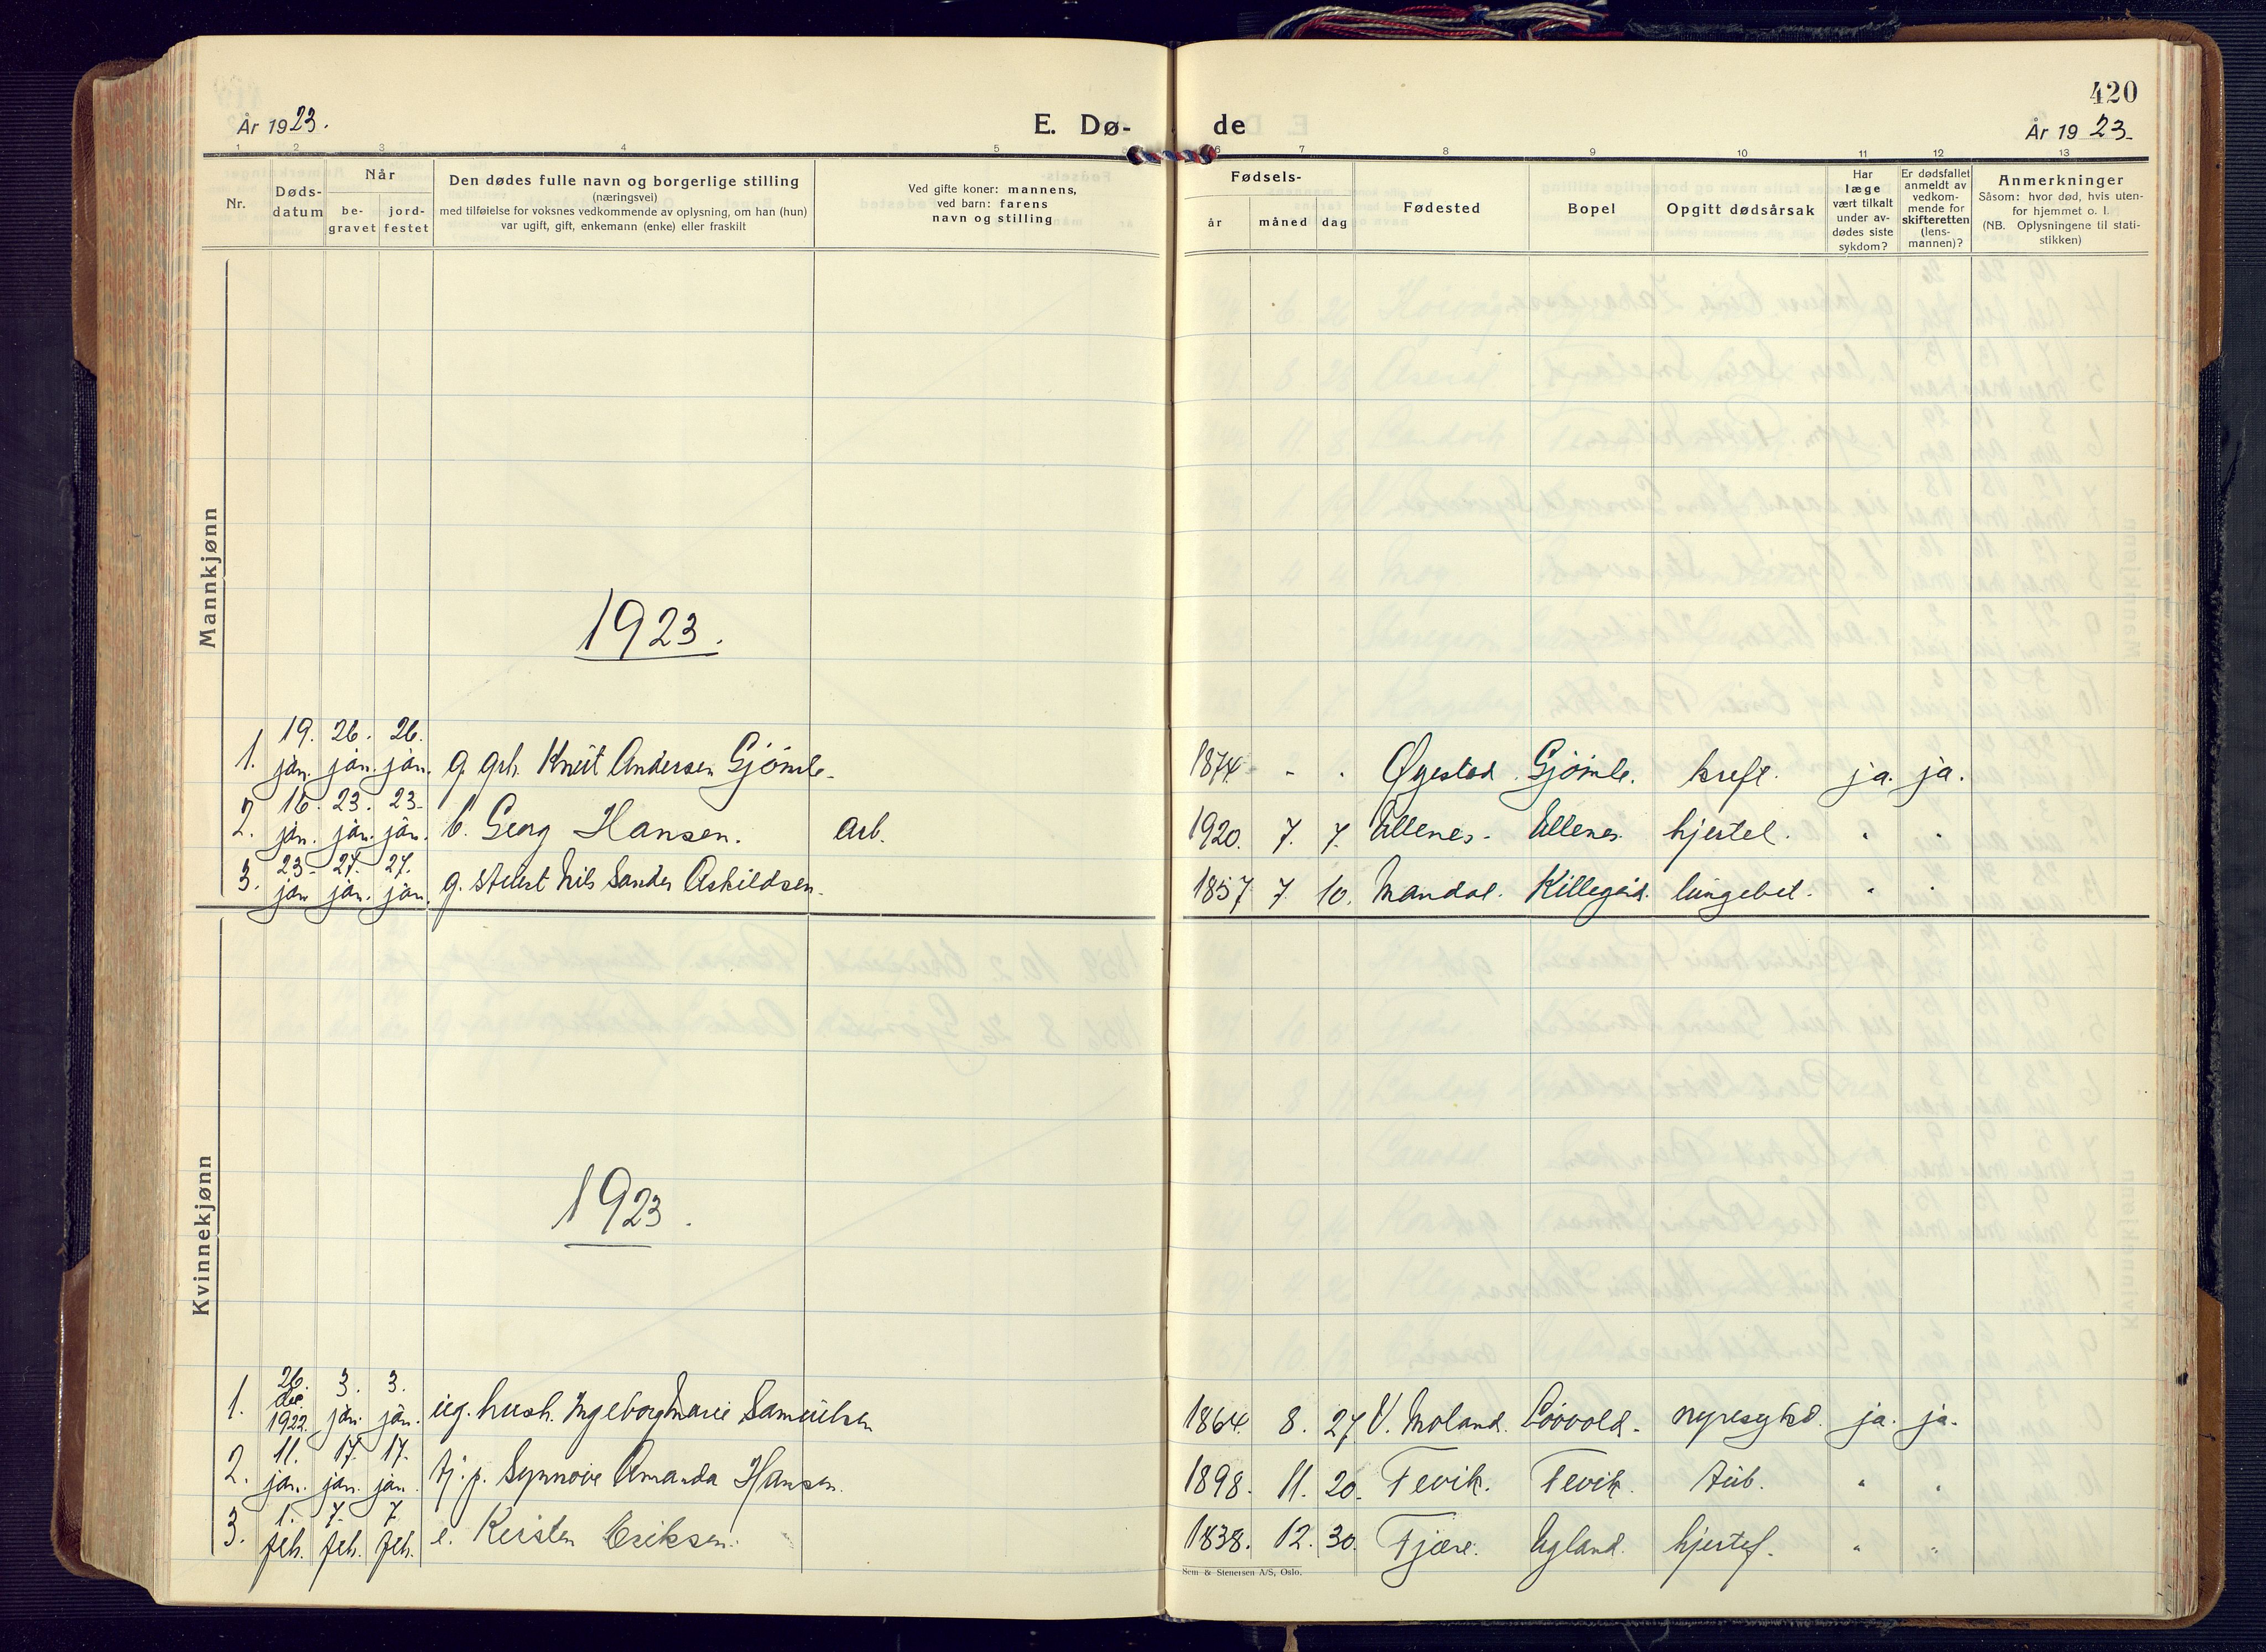 420
År 1923.
E. Dø-
de
År 1923.
1 2 3 4 5 6 7 8 9 10 11 12 13
Nr.
Døds-
datum
Når
be-
gravet
jord-
festet
Den dødes fulle navn og borgerlige stilling
(næringsvei)
med tilføielse for voksnes vedkommende av oplysning, om han (hun)
var ugift, gift, enkemann (enke) eller fraskilt
Ved gifte koner: mannens,
ved barn: farens
navn og stilling
Fødsels-
år
måned
dag
Fødested
Bopel
Opgitt dødsårsak
Har
læge
vært tilkalt
under av-
dødes siste
sykdom?
Er dødsfallet
anmeldt av
vedkom-
mende for
skifteretten
(lens-
mannen)?
Anmerkninger
Såsom: hvor død, hvis uten-
for hjemmet o. l.
(NB. Oplysningene til stati-
stikken)
Mannkjønn
1923.
19. 26. 26.
1. jan. jan. jan. g. grb. Knut Andersen Gjömle. 1874 - . Øyestad. Gjömle. kreft. ja. ja.
16. 23. 23.
2. jan. jan. jan. b. Georg Hansen. arb. 1920. 7. 7. Allenes. Allenes. hjertel. " "
23. 27. 27.
3. jan. jan. jan. g. Nils Sander Askildsen. 1857 7. 10. Mandal. Killegård. lungebet. " "
Kvinnekjønn
1923.
26. 3. 3.
1. des. 1922. jan. jan. ug. hush. Ingeborg Marie Samuelsen 1864. 8. 27 V. Moland. Lövold. nyresykd. ja. ja.
11. 17. 17.
2. jan. jan. jan. tj. p. Synnöve Amanda Hansen. 1898. 11. 20. Fevik. Fevik. tub. " "
1. 7. 7.
3. feb. feb. feb. e. Kirsten Eriksen. 1838. 12. 30. Fjære. Ugland. hjertef. " "
Sem & Stenersen A/S, Oslo.